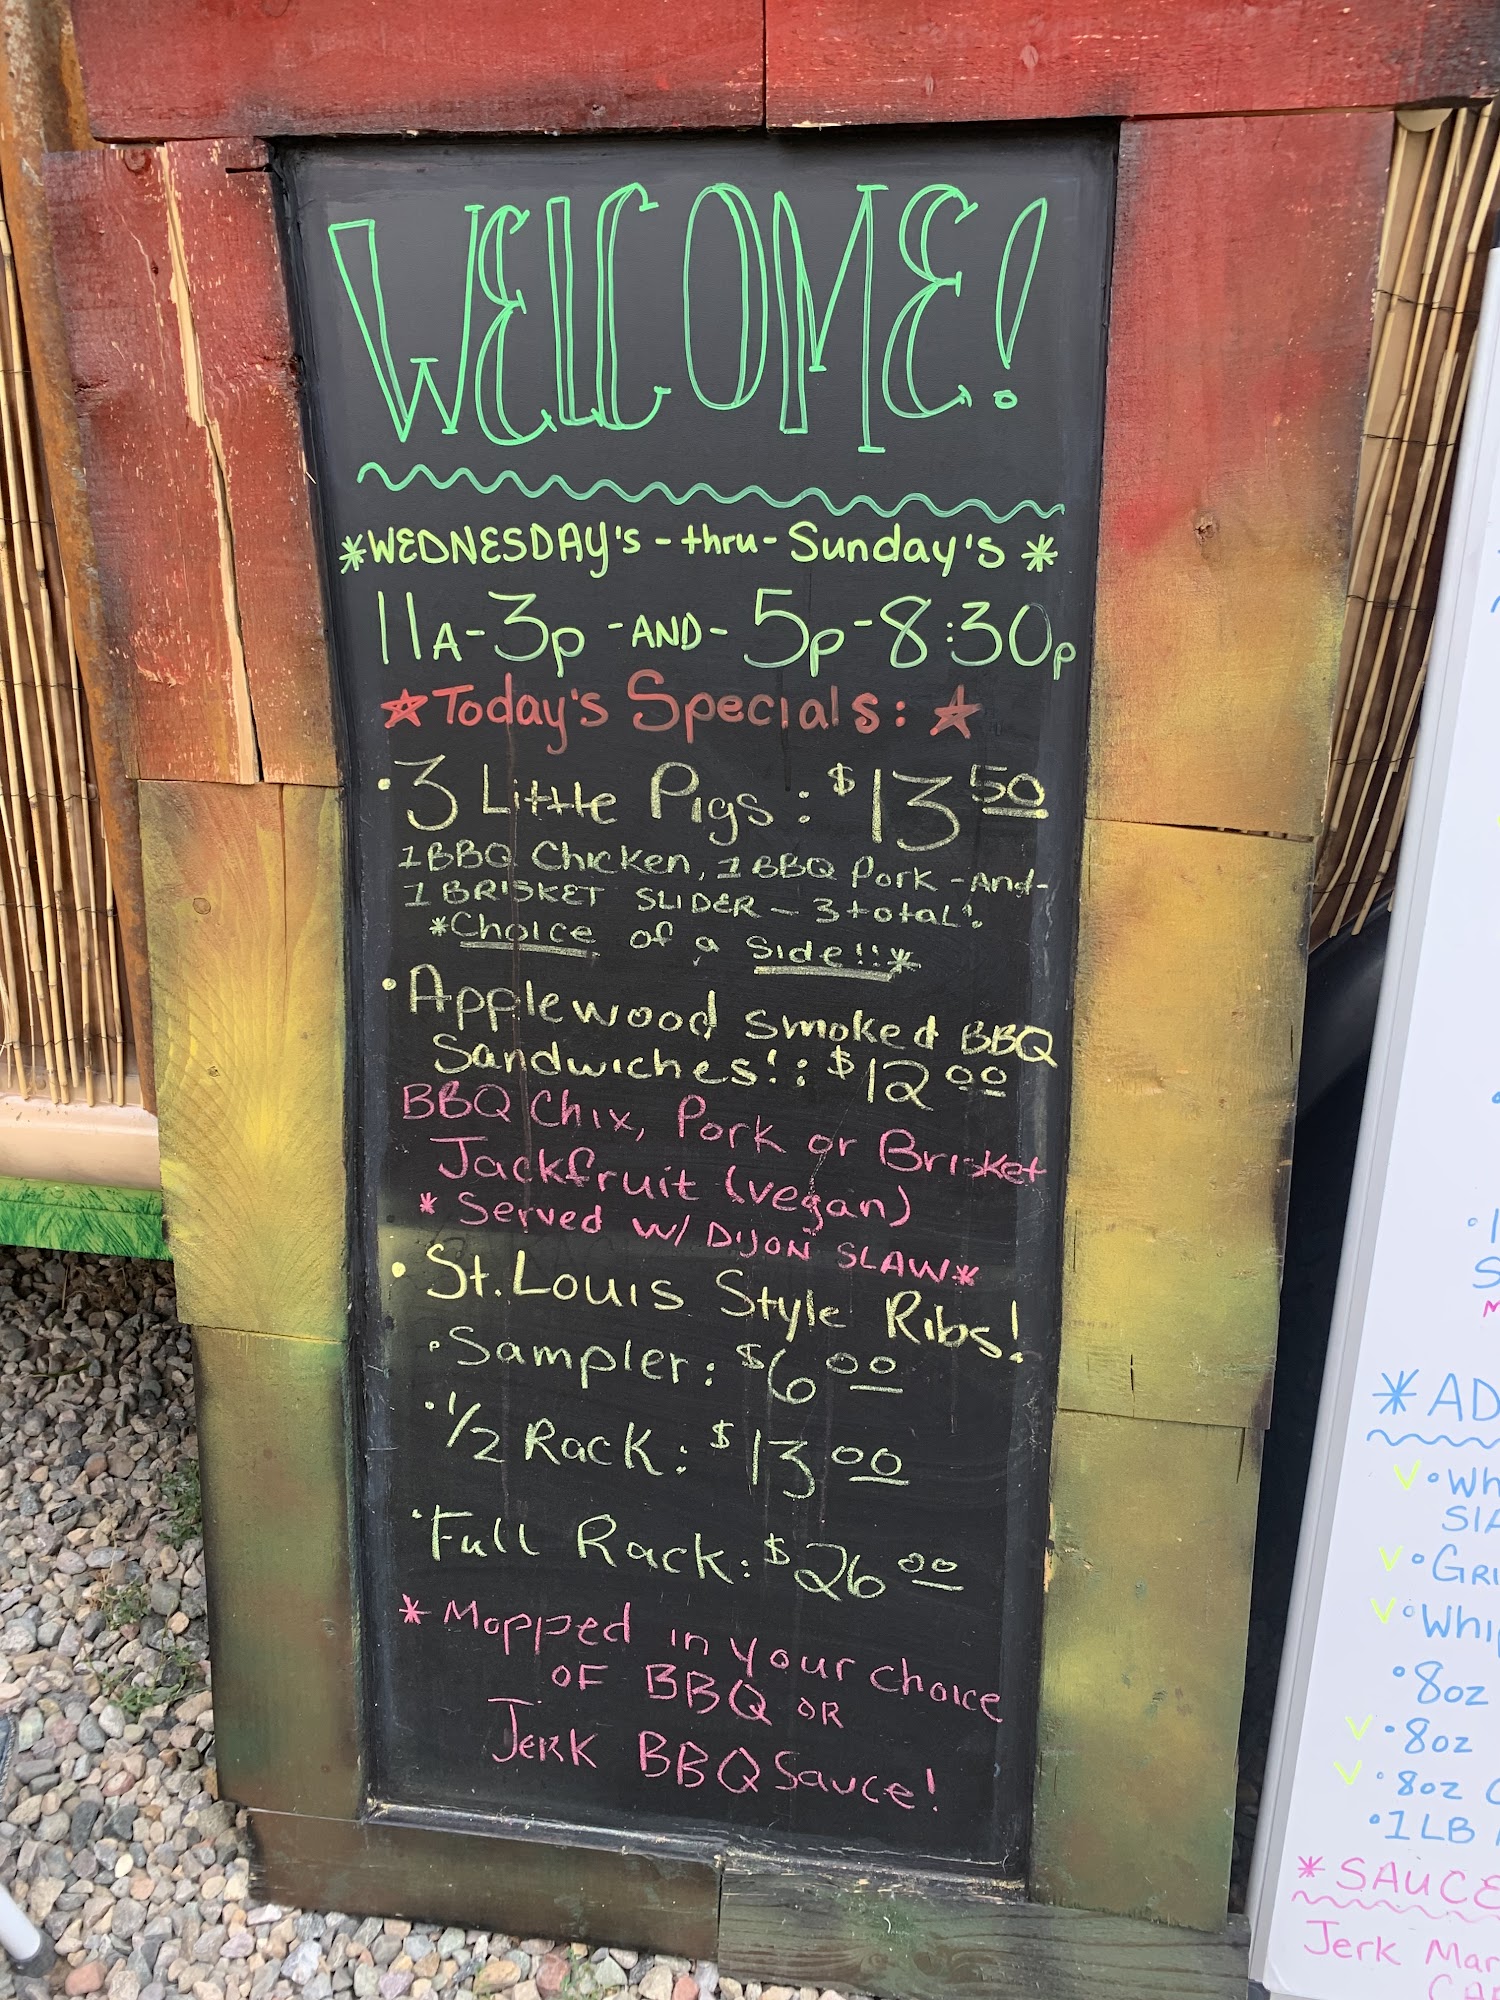 WELCOME!
*WEDNESDAY's - thru - Sunday's *
11A - 3p - AND - 5p - 8:30p
Today's Specials:
• 3 Little Pigs: $13 50
1 BBQ Chicken, 1 BBQ Pork - And -
1 BRISKET SLIDER - 3 total!
*Choice of a side!!*
• Applewood smoked BBQ
Sandwiches!: $12 00
BBQ Chix, Pork or Brisket
Jackfruit (vegan)
* Served w/ DIJON SLAW*
• St. Louis Style Ribs!
• Sampler: $6 00
• 1/2 Rack: $13 00
• Full Rack: $26 00
* Mopped in your choice
OF BBQ OR
Jerk BBQ Sauce!
* AD
• Wh
SLA
• GRI
• Whip
• 8oz
• 8oz
• 8oz
• 1 LB
* SAUCE
Jerk Mar